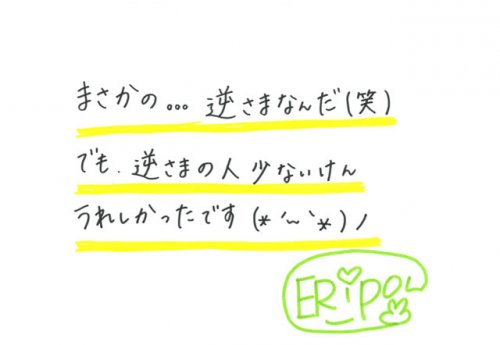 まさかの... 逆さまなんだ(笑)
でも、逆さまの人 少ないけん
うれしかったです (*´～`*)ノ
ERiPOん